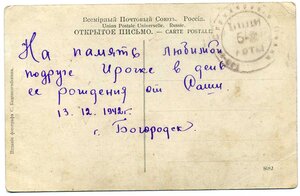 Всемірный Почтовый Союзъ. Россія.
Union Postale Universelle. Russie.
ОТКРЫТОЕ ПИСЬМО. — CARTE POSTALE
На память любимой
подруге Ирочке в день
ее рождения от Даши
13.12.1942г.
г. Богородск